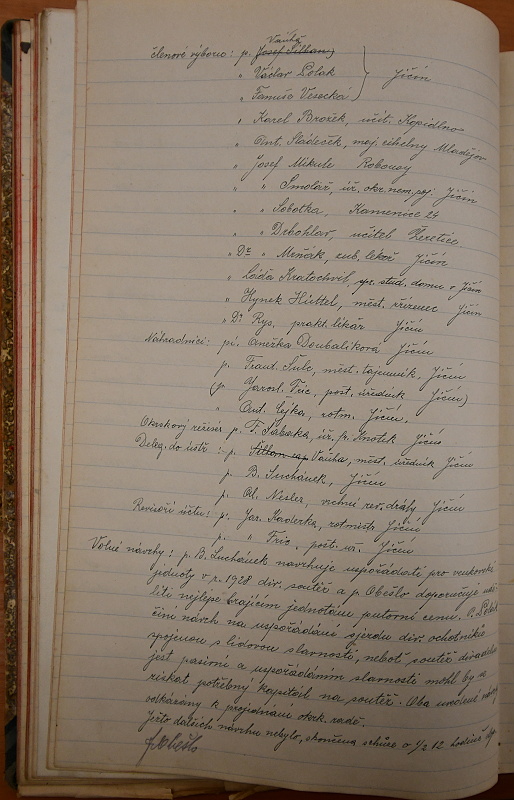 Vaňhá
členové výboru: p. Josef Sillan)
„ Václav Polák } Jičín
„ Fanuše Vesecká
„ Karel Brožek, učit. Kopidlno
„ Ant. Sládeček, maj. cihelny Mladějov
„ Josef Mikule Robousy
„ „ Smolař, úř. okr. nem. poj. Jičín
„ „ Sobotka, Kamenice 24
„ „ Drbohlav, učitel Žeretice
„ Dr „ Menčák, zub. lékař Jičín
„ Láďa Kratochvíl, spr. stud. domu v Jičín
„ Hynek Hüttel, měst. zřízenec Jičín
„ Dr Rys, prakt. lékař Jičín
Náhradníci: pí. Anežka Doubalíková Jičín
p. Frant. Šulc, měst. tajemník, Jičín
(p. Jarosl. Fric, pošt. úředník Jičín)
„ Ant. Čejka, rotm. Jičín.
Okrskový režisér p. F. Sabaka, úř. fy. Knotek Jičín
Deleg. do ústř.: p. Vaňha, měst. úředník Jičín
p. B. Suchánek, Jičín
p. Ol. Nesler, vrchní rev. dráhy Jičín
Revisoři účtů: p. Jar. Kaderka, rotmistr Jičín
p. „ Fric, pošt. úř. Jičín
Volné návrhy: p. B. Suchánek navrhuje uspořádati pro venkovské
jednoty v r. 1928 div. soutěž a p Obešlo doporučuje udí-
leti nejlépe hrajícím jednotám putovní cenu. P. Polák
činí návrh na uspořádání sjezdu div. ochotníků
spojenou s lidovou slavností, neboť soutěž divadelní
jest pasivní a uspořádáním slavnosti mohl by se
získat potřebný kapitál na soutěž. Oba uvedené návrhy
odkázány k projednání okrsk. radě.
Ježto dalších návrhů nebylo, skončena schůze o 1/2 12 hodině
p. Obešlo